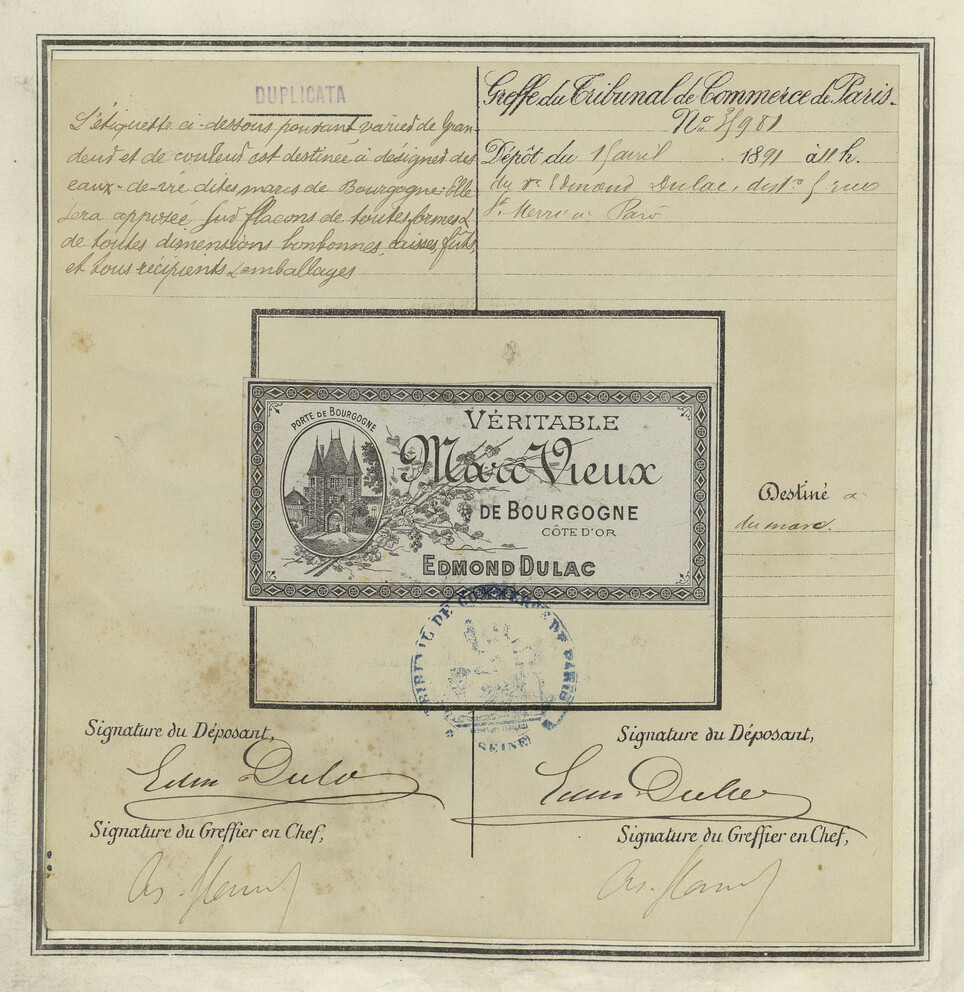 DUPLICATA
L'étiquette ci-dessous pouvant varier de gran-
deur et de couleur est destinée à désigner des
eaux-de-vie dites marcs de Bourgogne. Elle
sera apposée sur flacons de toutes formes &
de toutes dimensions bonbonnes, caisses, fûts,
et tous récipients & emballages
Greffe du Tribunal de Commerce de Paris.
No.
Dépôt du avril 1891 à 11 h.
du Sr Edmond Dulac, dist. rue
St Merri à Paris
PORTE DE BOURGOGNE
VÉRITABLE
Marc Vieux
DE BOURGOGNE
CÔTE D'OR
EDMOND DULAC
Destiné à
du marc.
TRIBUNAL DE COMMERCE DE PARIS
SEINE
Signature du Déposant,
Edm Dulac
Signature du Greffier en Chef,
Signature du Déposant,
Edm Dulac
Signature du Greffier en Chef,